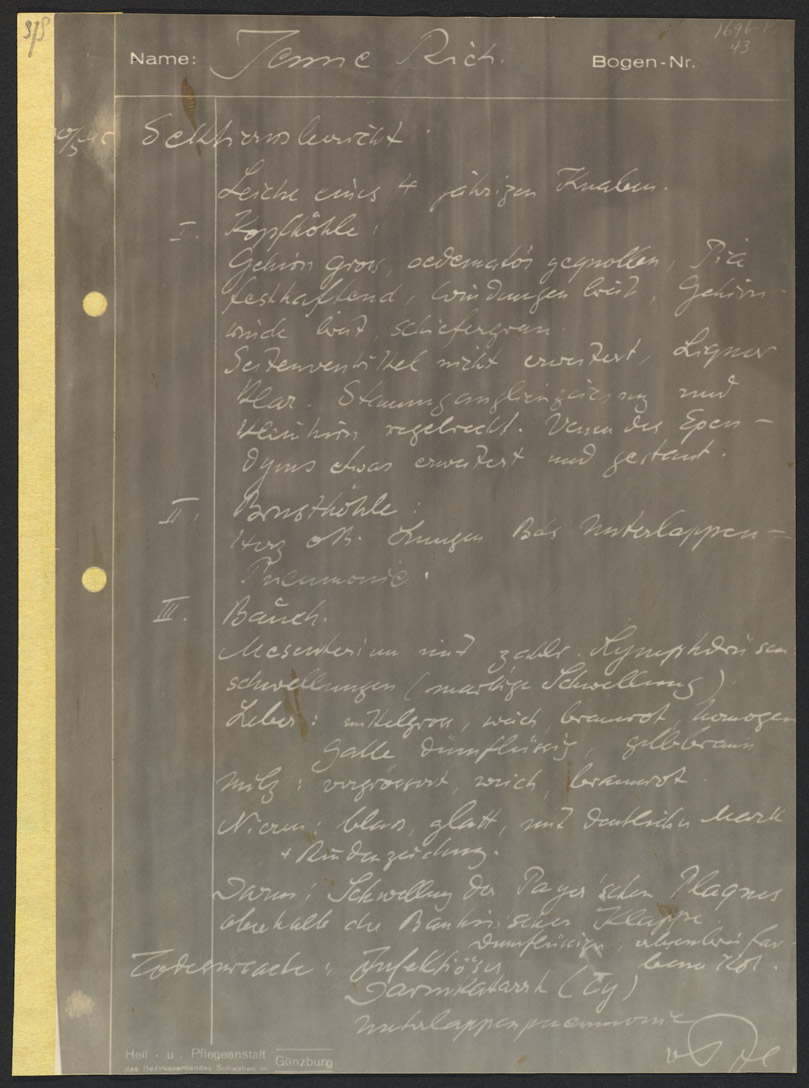 378
1696-
43
Name: Jenne Rich. Bogen-Nr.
Sektionsbericht.
Leiche eines 4 jährigen Knaben.
I. Kopfhöhle:
Gehirn gross, oedematös gequollen, Pia
festhaftend, Windungen breit, Gehirn-
rinde breit, schiefergrau.
Seitenventrikel nicht erweitert, Liquor
klar. Stammganglienzeichnung und
Kleinhirn regelrecht. Venen des Epen-
dyms etwas erweitert und gestaut.
II. Brusthöhle:
Herz oB. Lungen Bds Unterlappen=
Pneumonie.
III. Bauch.
Mesenterium mit zahlr. Lymphdrüsen
schwellungen (markige Schwellung)
Leber: mittelgross, weich, braunrot, homogen
Galle dünnflüssig, gelbbraun
Milz: vergrössert, weich, braunrot
Nieren: blass, glatt, mit deutlicher Mark
+ Rindenzeichnung.
Darm: Schwellung der Payer'schen Plaques
oberhalb der Bauhin'schen Klappe.
dünnflüssiger, erbsenbreifar-
bener Kot.
Todesursache: Infektiöser
Darmkatarrh (Ty)
Unterlappenpneumonie
Heil- u. Pflegeanstalt Günzburg
des Bezirksverbandes Schwaben in